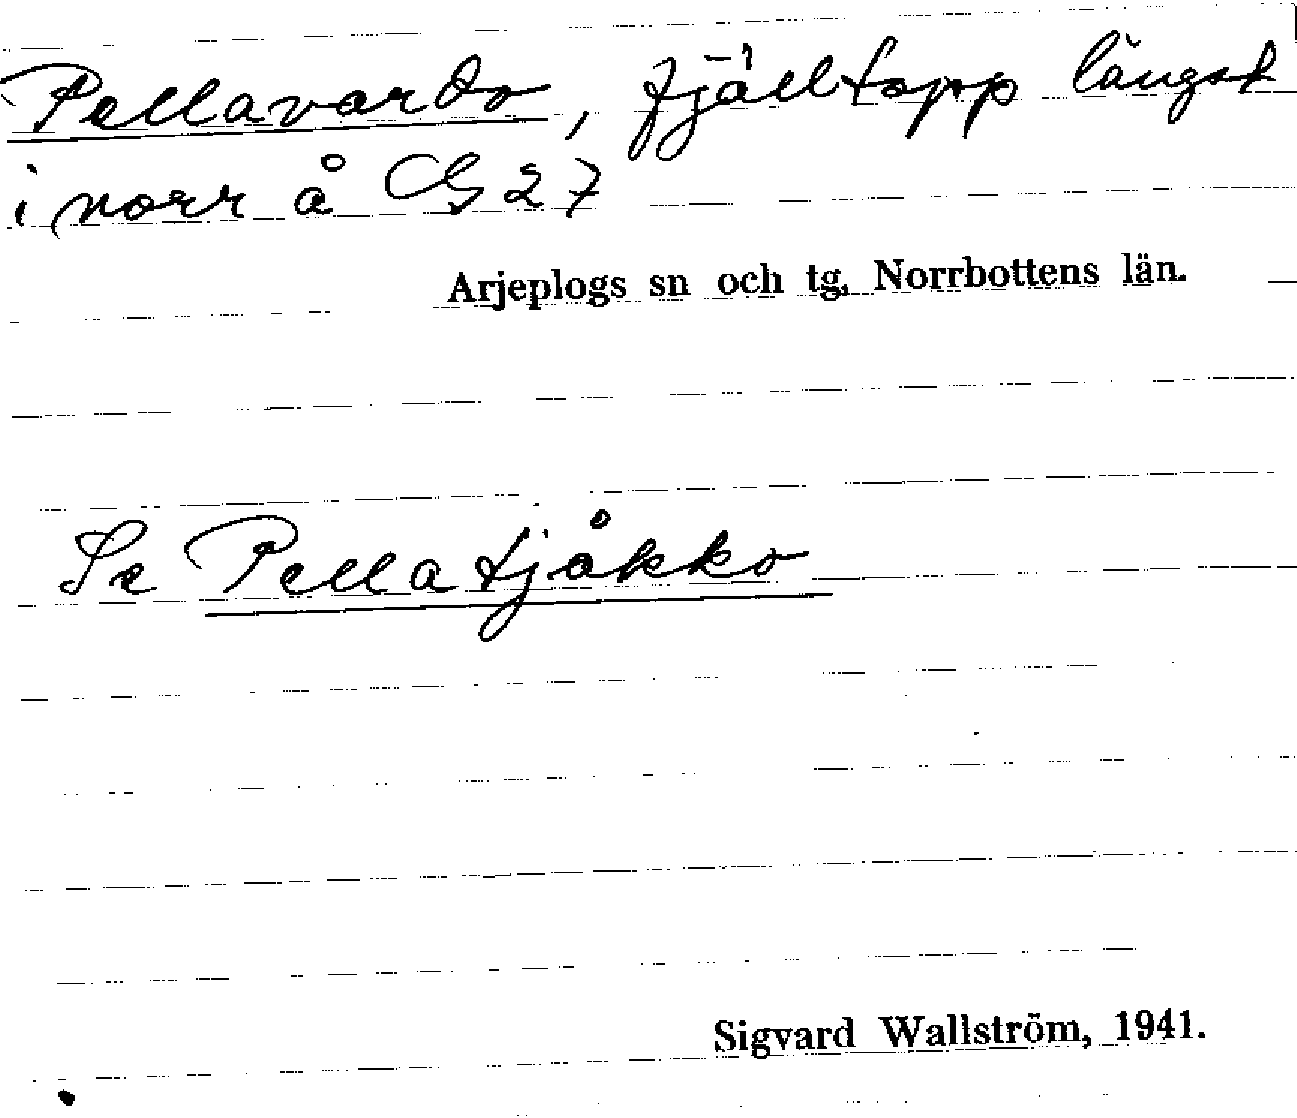 Pellavardo, fjälltopp längst
i norr å G 27
Arjeplogs sn och tg, Norrbottens län.
Se Pellatjåkko
Sigvard Wallström, 1941.